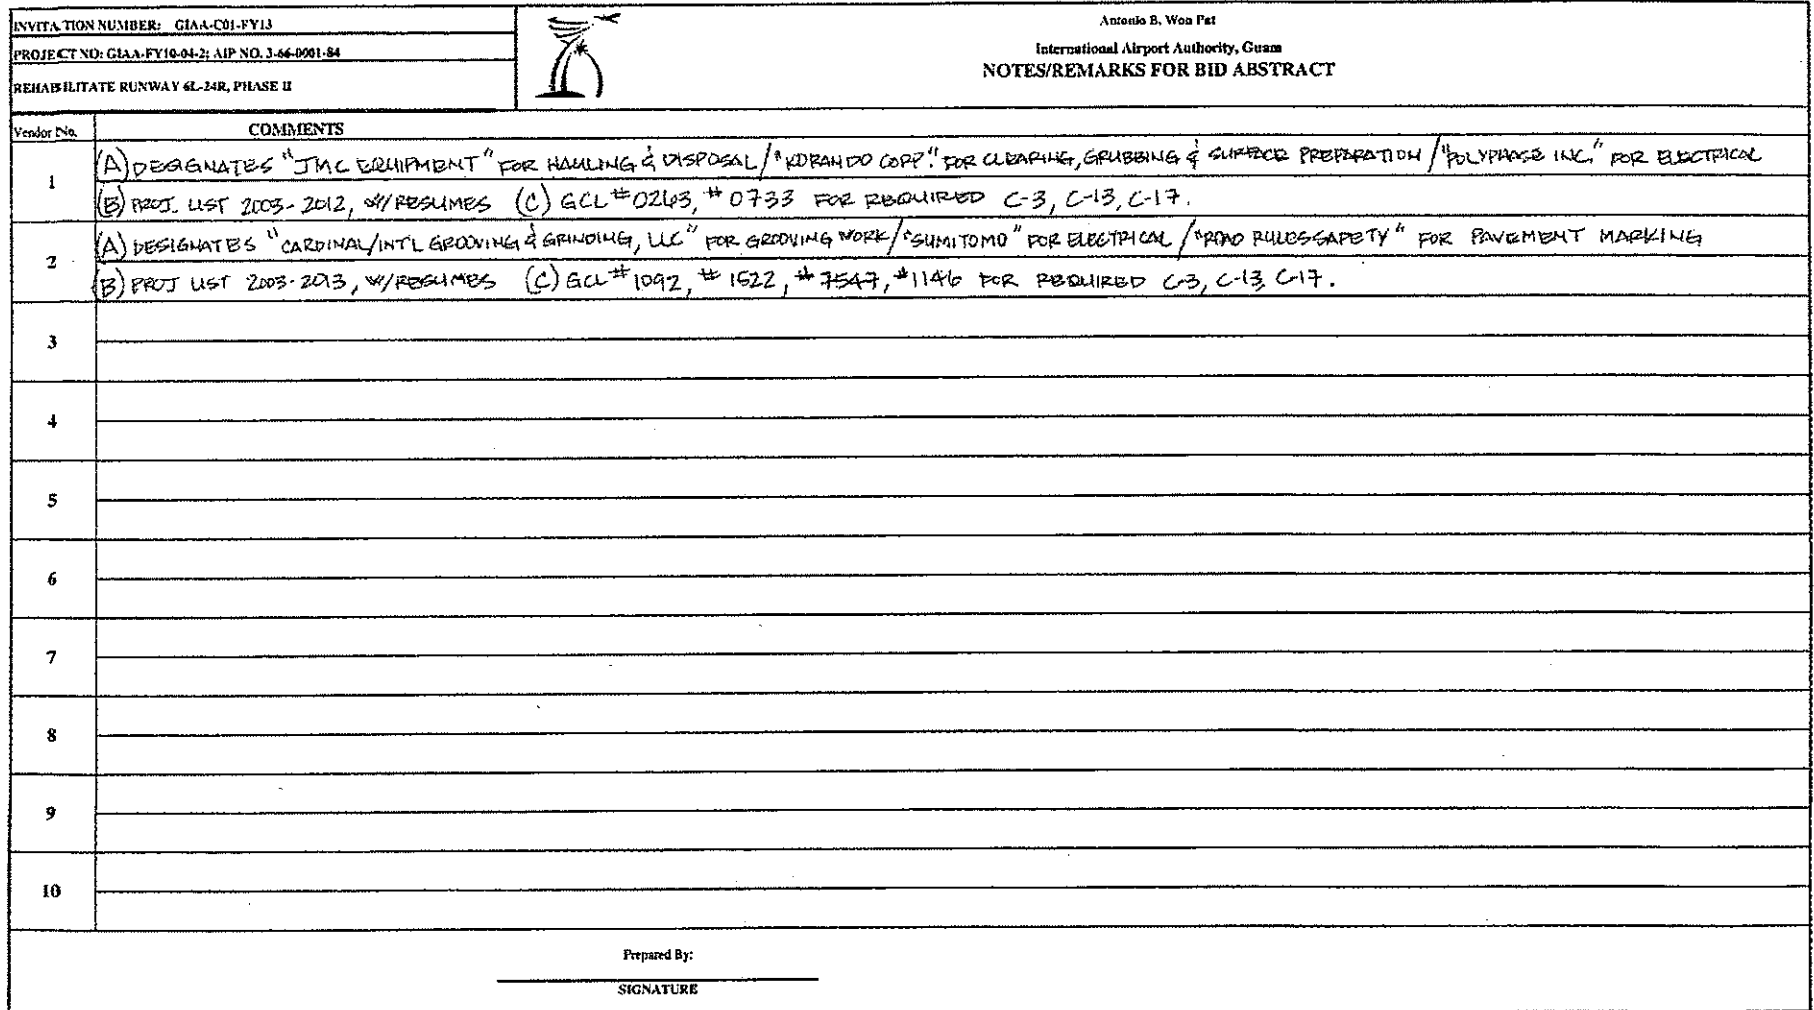 INVITATION NUMBER: GIAA-C01-FY13
PROJECT NO: GIAA-FY10-04-2; AIP NO. 3-66-0001-84
REHABILITATE RUNWAY 6L-24R, PHASE II
Antonio B. Won Pat
International Airport Authority, Guam
NOTES/REMARKS FOR BID ABSTRACT
Vendor No. COMMENTS
1
(A) DESIGNATES "JMC EQUIPMENT" FOR HAULING & DISPOSAL / "KORANDO CORP." FOR CLEARING, GRUBBING & SURFACE PREPARATION / "POLYPHASE INC." FOR ELECTRICAL
(B) PROJ. LIST 2003-2012, W/RESUMES (C) GCL #0263, #0733 FOR REQUIRED C-3, C-13, C-17.
2
(A) DESIGNATES "CARDINAL/INT'L GROOVING & GRINDING, LLC" FOR GROOVING WORK / "SUMITOMO" FOR ELECTRICAL / "ROAD RULES SAFETY" FOR PAVEMENT MARKING
(B) PROJ LIST 2003-2013, W/RESUMES (C) GCL #1092, #1522, #7547, #1146 FOR REQUIRED C-3, C-13, C-17.
3
4
5
6
7
8
9
10
Prepared By:
SIGNATURE